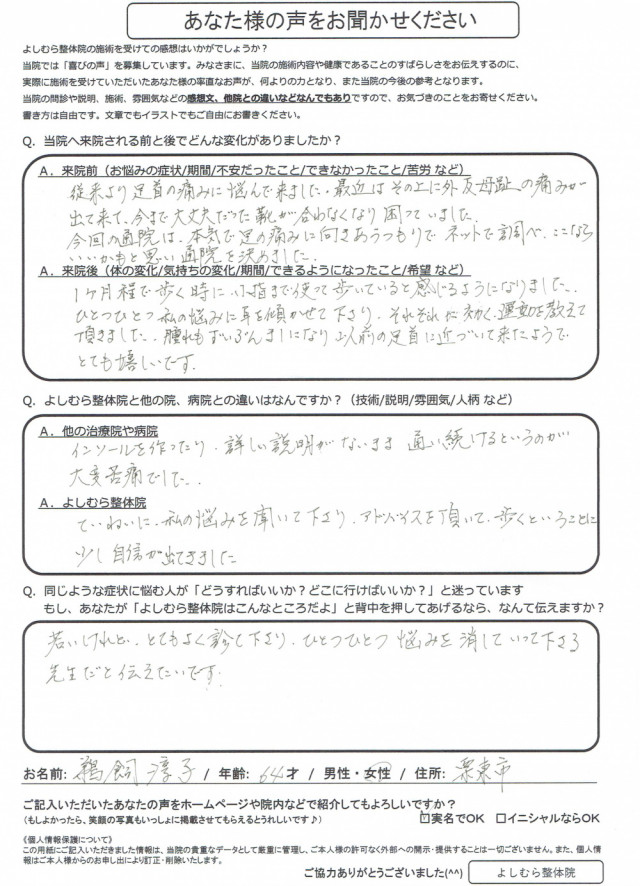 あなた様の声をお聞かせください
よしむら整体院の施術を受けての感想はいかがでしょうか？
当院では「喜びの声」を募集しています。みなさまに、当院の施術内容や健康であることのすばらしさをお伝えするのに、
実際に施術を受けていただいたあなた様の率直なお声が、何よりの力となり、また当院の今後の参考となります。
当院の問診や説明、施術、雰囲気などの感想文、他院との違いなどなんでもありですので、お気づきのことをお寄せください。
書き方は自由です。文章でもイラストでもご自由にお書きください。
Q．当院へ来院される前と後でどんな変化がありましたか？
A．来院前（お悩みの症状/期間/不安だったこと/できなかったこと/苦労 など）
従来より足首の痛みに悩んで来ました．最近はその上に外反母趾の痛みが
出て来て、今まで大丈夫だった靴が合わなくなり困っていました．
今回の通院は、本気で足の痛みに向きあうつもりでネットで調べ、ここなら
いいかもと思い通院を決めました．
A．来院後（体の変化/気持ちの変化/期間/できるようになったこと/希望 など）
1ヶ月程で歩く時に小指まで使って歩いていると感じるようになりました．
ひとつひとつ私の悩みに耳を傾かせて下さり、それぞれに効く運動を教えて
頂きました．腫れもずいぶんましになり以前の足首に近づいて来たようで
とても嬉しいです．
Q．よしむら整体院と他の院、病院との違いはなんですか？（技術/説明/雰囲気/人柄 など）
A．他の治療院や病院
インソールを作ったり、詳しい説明がないまま 通い続けるというのが
大変苦痛でした．
A．よしむら整体院
ていねいに、私の悩みを聞いて下さり、アドバイスを頂いて、歩くということに
少し自信が出てきました
Q．同じような症状に悩む人が「どうすればいいか？どこに行けばいいか？」と迷っています
もし、あなたが「よしむら整体院はこんなところだよ」と背中を押してあげるなら、なんて伝えますか？
若いけれど、とてもよく診て下さり、ひとつひとつ 悩みを消していって下さる
先生だと伝えたいです．
お名前: 鵜飼 淳子 / 年齢: 64才 / 男性・女性 / 住所: 栗東市
ご記入いただいたあなたの声をホームページや院内などで紹介してもよろしいですか？
（もしよかったら、笑顔の写真もいっしょに掲載させてもらえるとうれしいです♪） ☑実名でOK □イニシャルならOK
《個人情報保護について》
この用紙にご記入いただきました情報は、当院の貴重なデータとして厳重に管理し、ご本人様の許可なく外部への開示・提供することは一切ございません。また、個人情
報はご本人様からのお申し出により訂正・削除いたします。
ご協力ありがとうございました(^^) よしむら整体院